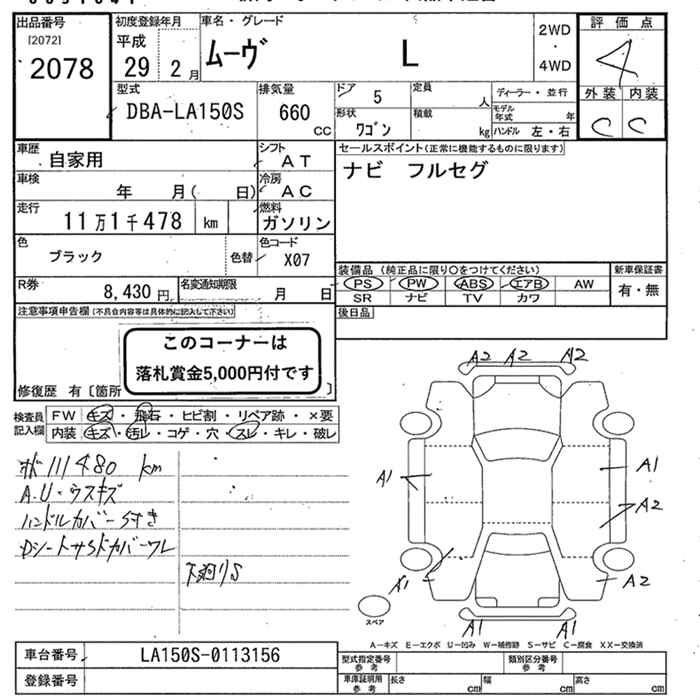 出品番号 初度登録年月 車名・グレード 評価点
[2072] 平成 2WD
2078 29年 2月 ムーヴ L ・ 4
4WD
外装 内装
C C
型式 排気量 ドア 5 定員 人 ディーラー・並行
DBA-LA150S 660 cc 形状 ワゴン 積載 kg モデル年式 年
ハンドル 左・右
車歴 自家用 シフト AT セールスポイント(正常に機能するものに限ります)
車検 年 月( 日) 冷房 AC ナビ フルセグ
走行 11万1千478 km 燃料 ガソリン
色 ブラック 色替 色コード X07
装備品 (純正品に限り○をつけてください) 新車保証書
R券 8,430円 名変通知期限 月 日 PS PW ABS エアB AW 有・無
SR ナビ TV カワ
注意事項申告欄(不具合内容等は具体的に記入して下さい) 後日品
このコーナーは
落札賞金5,000円付です
修復歴 有 [箇所 ]
検査員記入欄 FW キズ・飛石・ヒビ割・リペア跡・×要
内装 キズ・汚レ・コゲ・穴・スレ・キレ・破レ
111480 km
A.U・ウスキズ
ハンドルカバー付き
Dシートサイドカバーワレ
下廻りS
A2 A2 A2
A1 A1
A2
A1 A2
A1 A1
スペア
A-キズ E-エクボ U-凹み W-補修跡 S-サビ C-腐食 XX-交換済
車台番号 LA150S-0113156 型式指定番号参考 類別区分番号参考
登録番号 車庫証明用参考 長さ cm 幅 cm 高さ cm